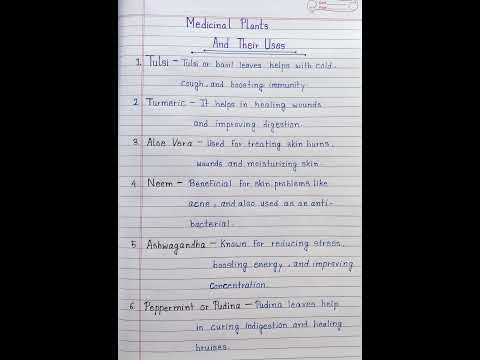 Medicinal Plants
And Their Uses
1. Tulsi – Tulsi or basil leaves helps with cold
cough, and boosting immunity
2. Turmeric – It helps in healing wounds
and improving digestion.
3. Aloe Vera – Used for treating skin burns,
wounds and moisturizing skin.
4. Neem – Beneficial for skin problems like
acne, and also used as an anti-
bacterial.
5. Ashwagandha – Known for reducing stress,
boosting energy, and improving
concentration.
6. Peppermint or Pudina – Pudina leaves help
in curing indigestion and healing
bruises.